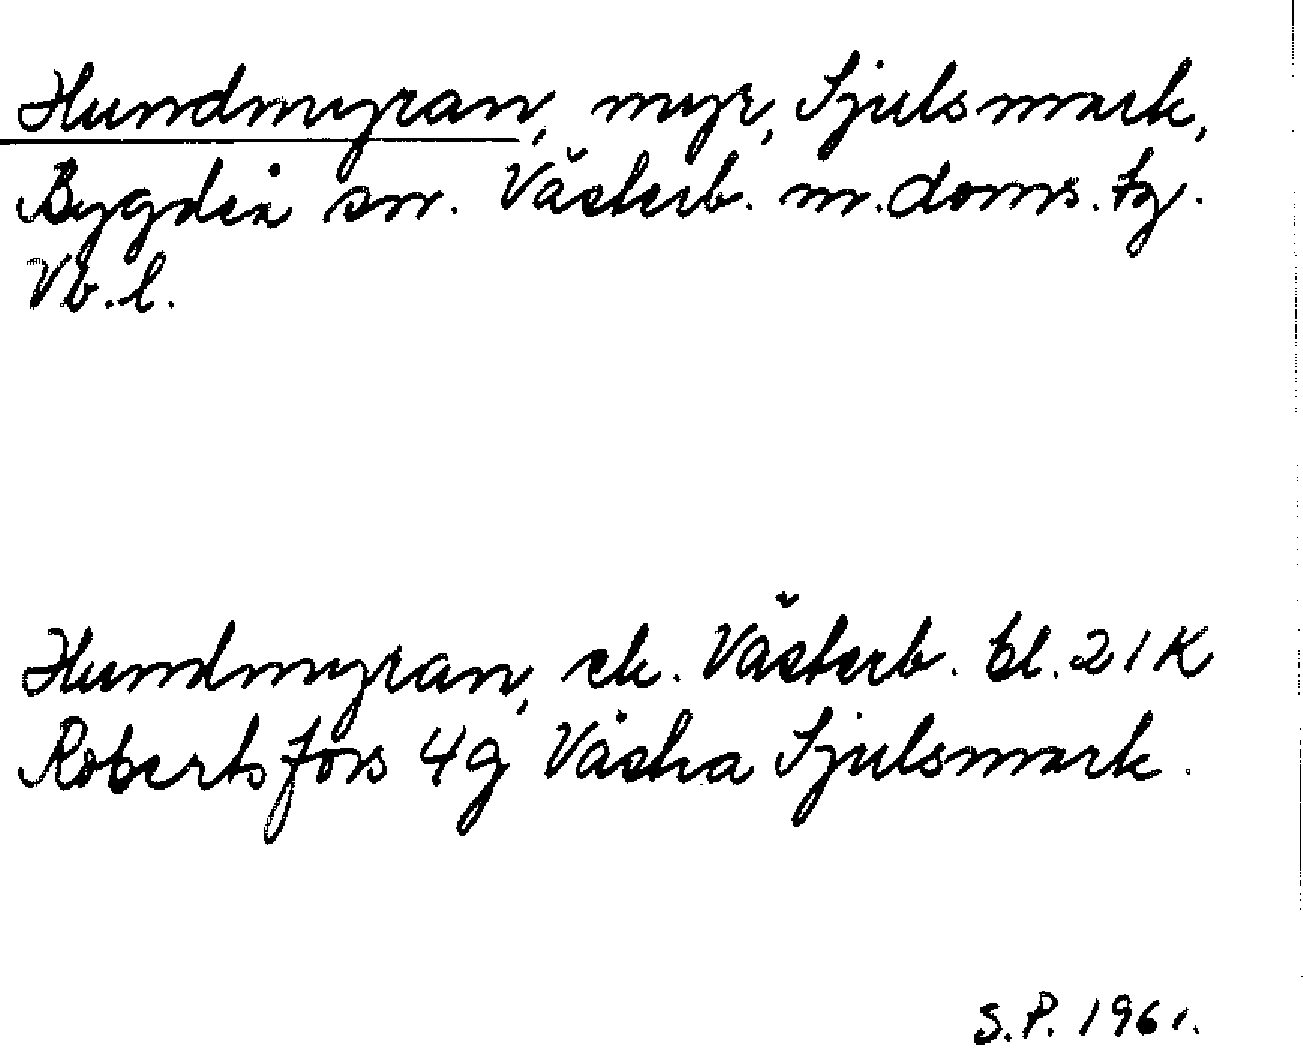 Hundmyran, myr, Sjulsmark,
Bygdeå sn. Västerb. m. doms. tg.
Vb. l.
Hundmyran, ek. Västerb. bl. 21K
Robertsfors 4g Västra Sjulsmark.
S.P. 1961.